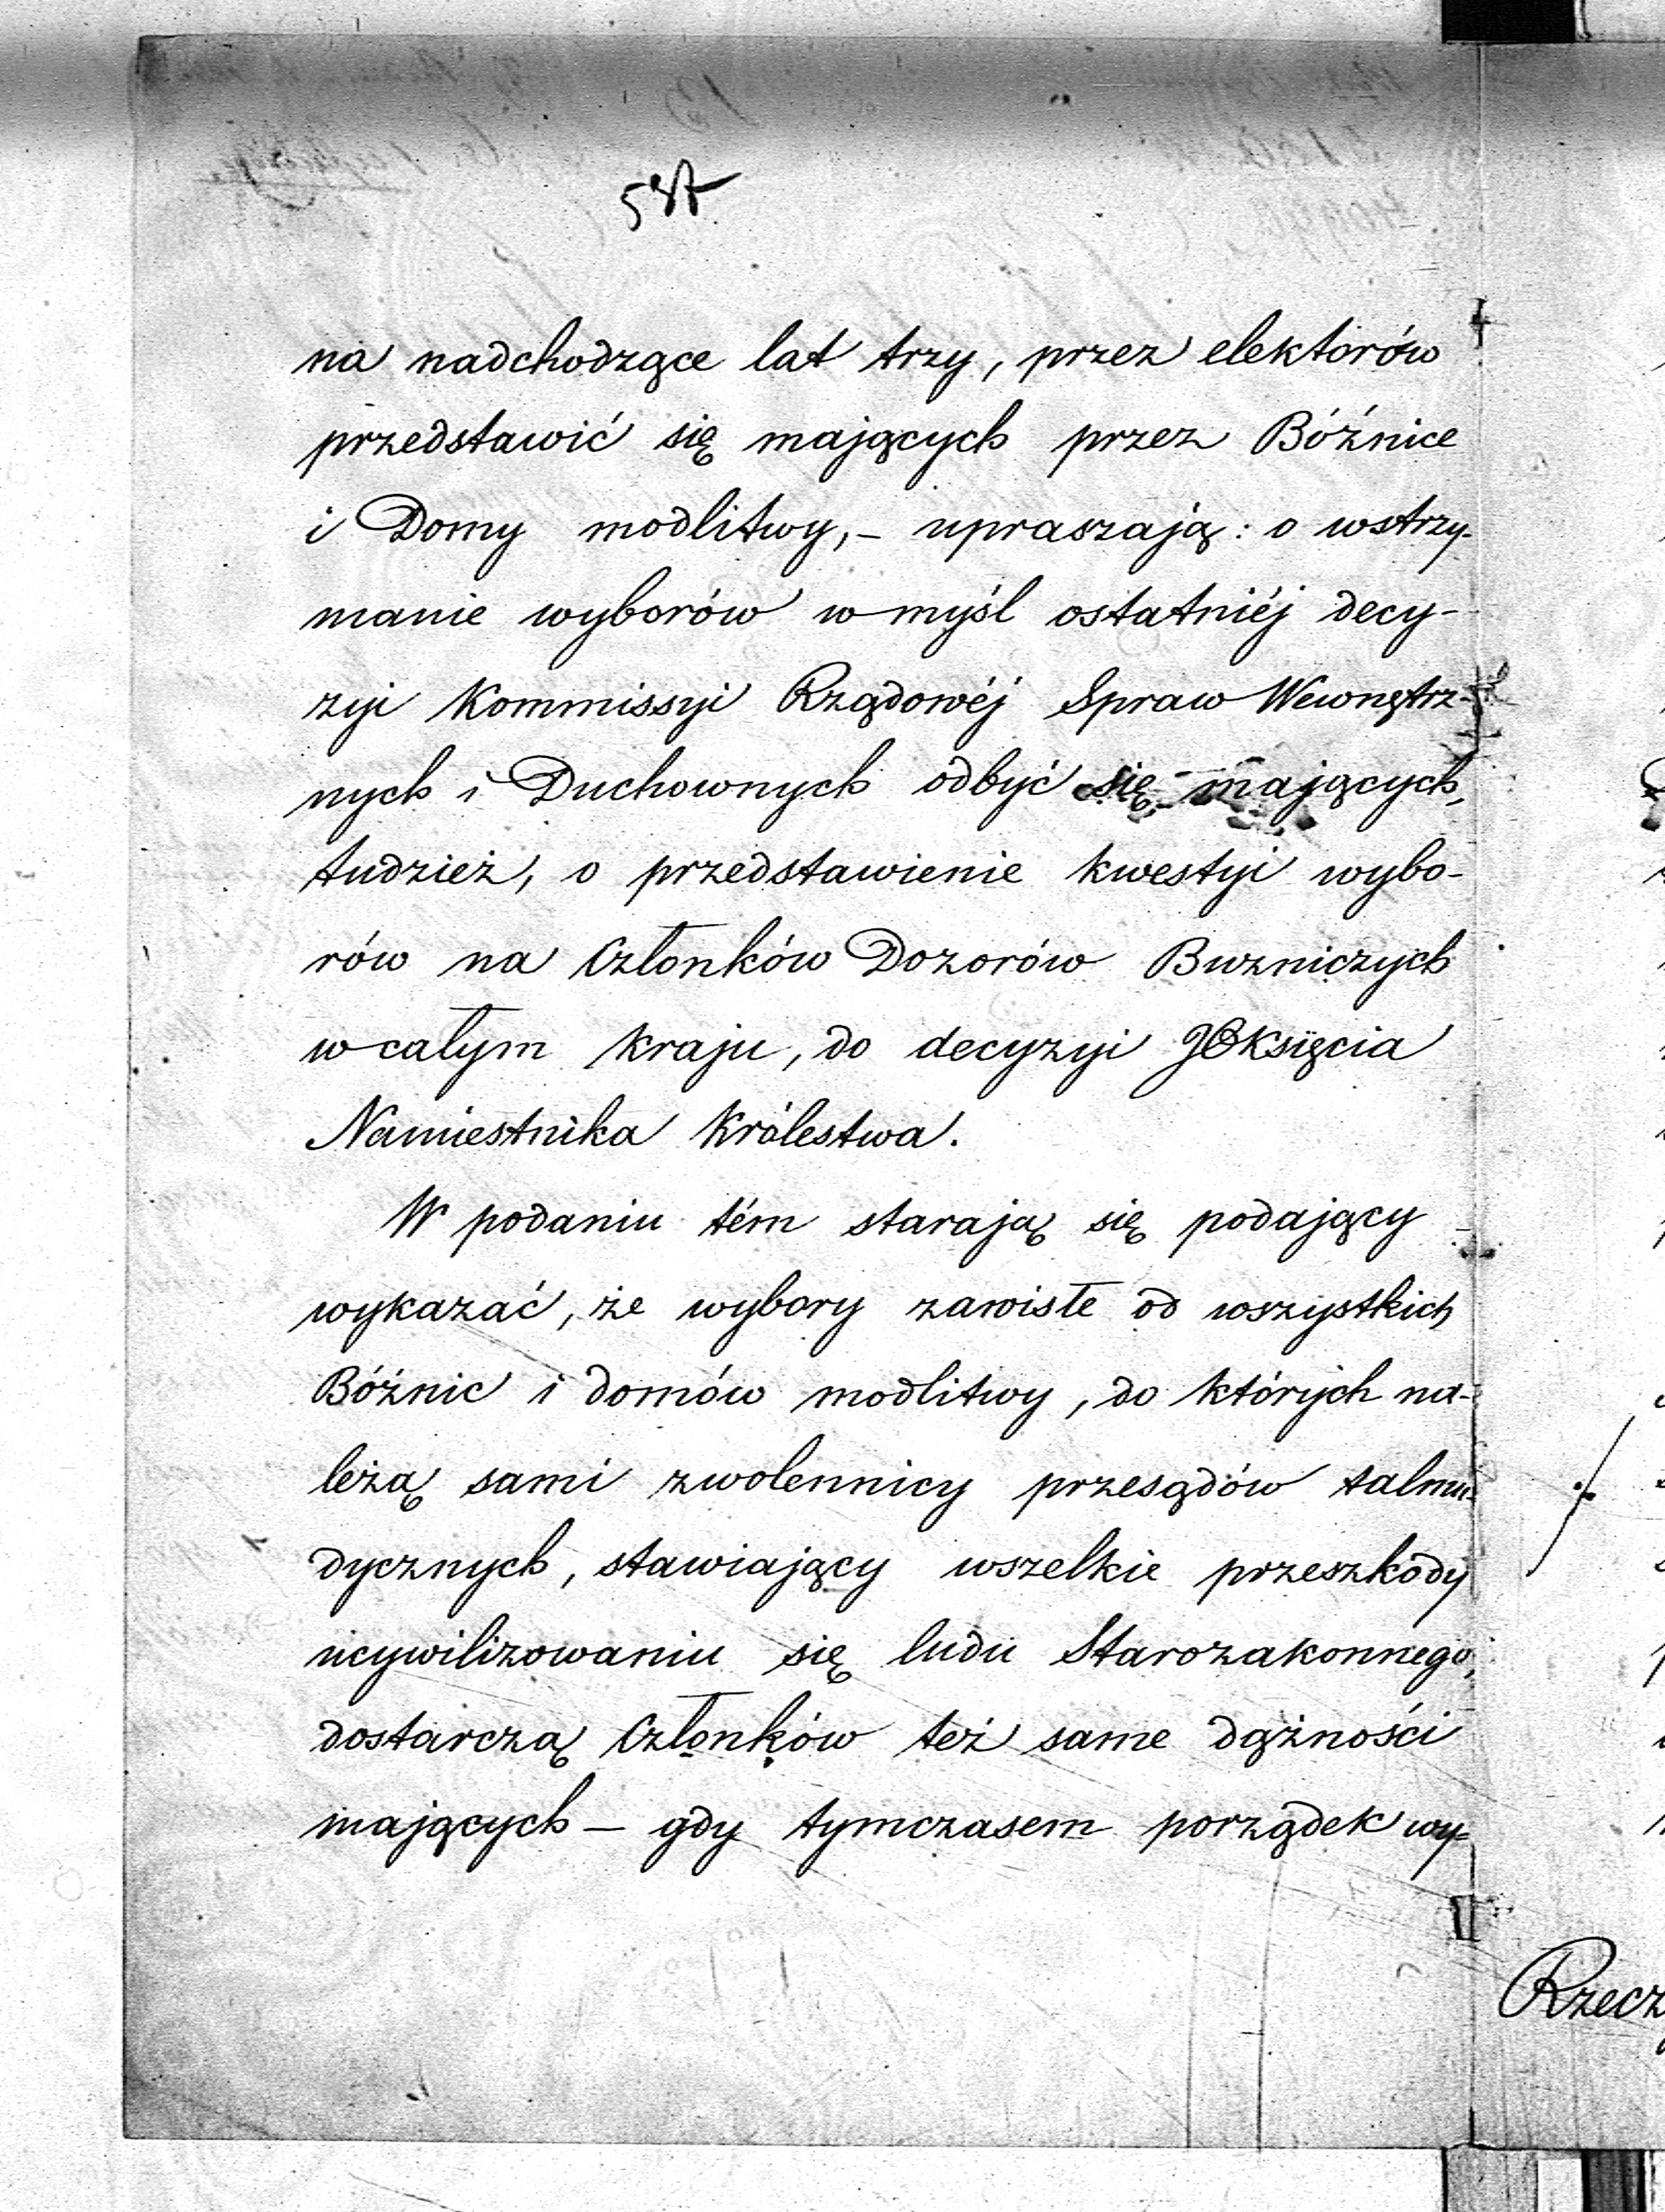 na nadchodzące lat trzy, przez elektorów
przedstawić się mających przez Bóźnice
i Domy modlitwy,- upraszają: o wstrzy-
manie wyborów w myśl ostatniéj decy-
zyi Kommissyi Rządowéj Spraw Wewnętrz-
nych i Duchownych odbyć się mających,
tudzież, o przedstawienie kwestyi wybo-
rów na Członków Dozorów Bużniczych
w całym kraju, do decyzyi JOKsięcia
Namiestnika Królestwa.
W podaniu tém starają się podający
wykazać, że wybory zawisłe od wszystkich
Bóźnic i domów modlitwy, do których na-
leżą sami zwolennicy przesądów talmu-
dycznych, stawiający wszelkie przeszkody
ucywilizowaniu się ludu Starozakonnego,
dostarczą Członków też same dążności
mających — gdy tymczasem porządek wy-
Rzecz